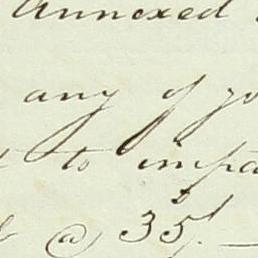 Annexed
any of yo
to impa
@ 35/.